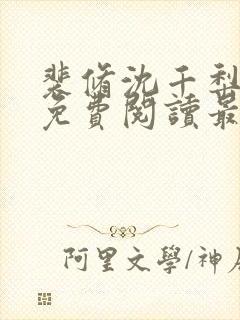 裴脩沈千利
免費閱讀最
阿里文學/神居